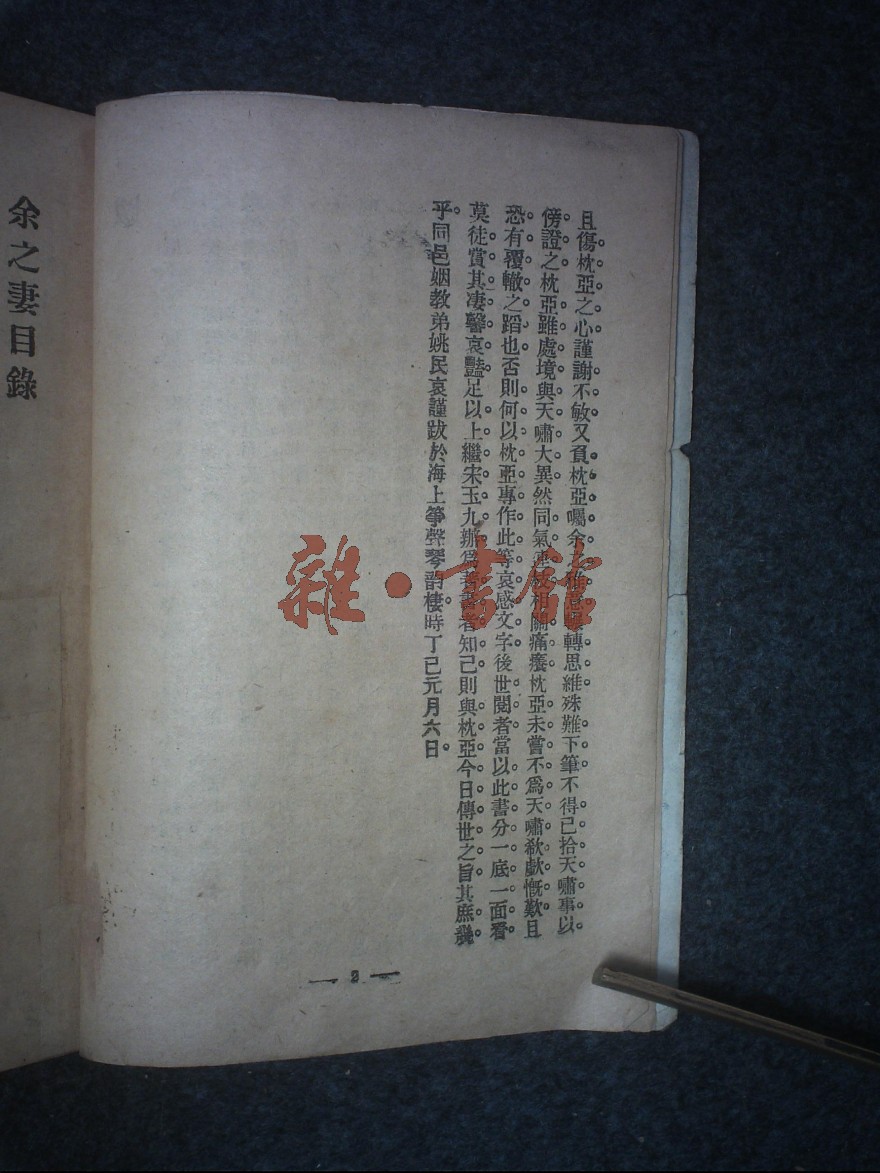 且傷枕亞之心謹謝不敏又負枕亞囑余之雅意輾轉思維殊難下筆不得已拾天嘯事以
傍證之枕亞雖處境與天嘯大異然同氣連枝相關痛癢枕亞未嘗不爲天嘯欷歔慨歎且
恐有覆轍之蹈也否則何以枕亞專作此等哀感文字後世閱者當以此書分一底一面看
莫徒賞其凄馨哀豔足以上繼宋玉九辯爲著書者知己則與枕亞今日傳世之旨其庶幾
乎同邑姻教弟姚民哀謹跋於海上箏聲琴韵棲時丁巳元月六日
2
余之妻目錄
雜·書館